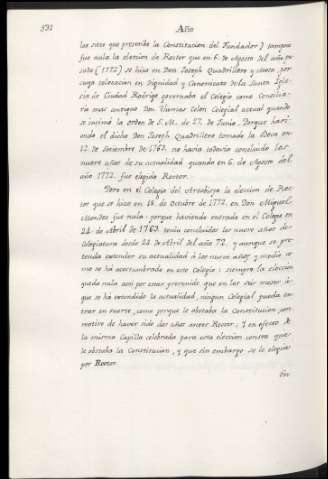 591
Año
los otos que prescribe la Constitucion del Fundador) tampoco
fue nula la eleccion de Rector que en 6. de Agosto del año pa
sado (1772) se hizo en Don Joseph Quadrillero y Mota, por
cuya colocacion en Dignidad y Canonicato de la Santa Igle-
sia de Ciudad Rodrigo governaba el Colegio como Consilia-
rio mas antiguo Don Thomas Colon Colegial actual quando
se intimó la orden de S.M. de 27. de Junio. Porque havi-
endo el dicho Don Joseph Quadrillero tomado la Beca en
12. de Setiembre de 1763. no havia todavia concluido los
nueve años de su actualidad quando en 6. de Agosto del
año 1772. fue elegido Rector.
Pero en el Colegio del Arzobispo la eleccion de Rec-
tor que se hizo en 18. de Octubre de 1772. en Don Miguel
Mendez fue nula: porque haviendo entrado en el Colegio en
24. de Abril de 1763. tenia concluidos los nueve años de
Colegiatura desde 24. de Abril del año 72. y aunque se pre
tenda extender su actualidad á los nueve años y medio co
mo se há acostumbrado en este Colegio: siempre la eleccion
queda nula aun por estar prevenido que en los seis meses á
que se há extendido la actualidad, ningun Colegial pueda en-
trar en suerte, como porque le obstaba la Constitucion, con
motivo de haver sido dos años antes Rector; y en efecto de
la misma Capilla celebrada para esta eleccion consta que
le obstaba la Constitucion, y que sin embargo se le eligió
por Rector.